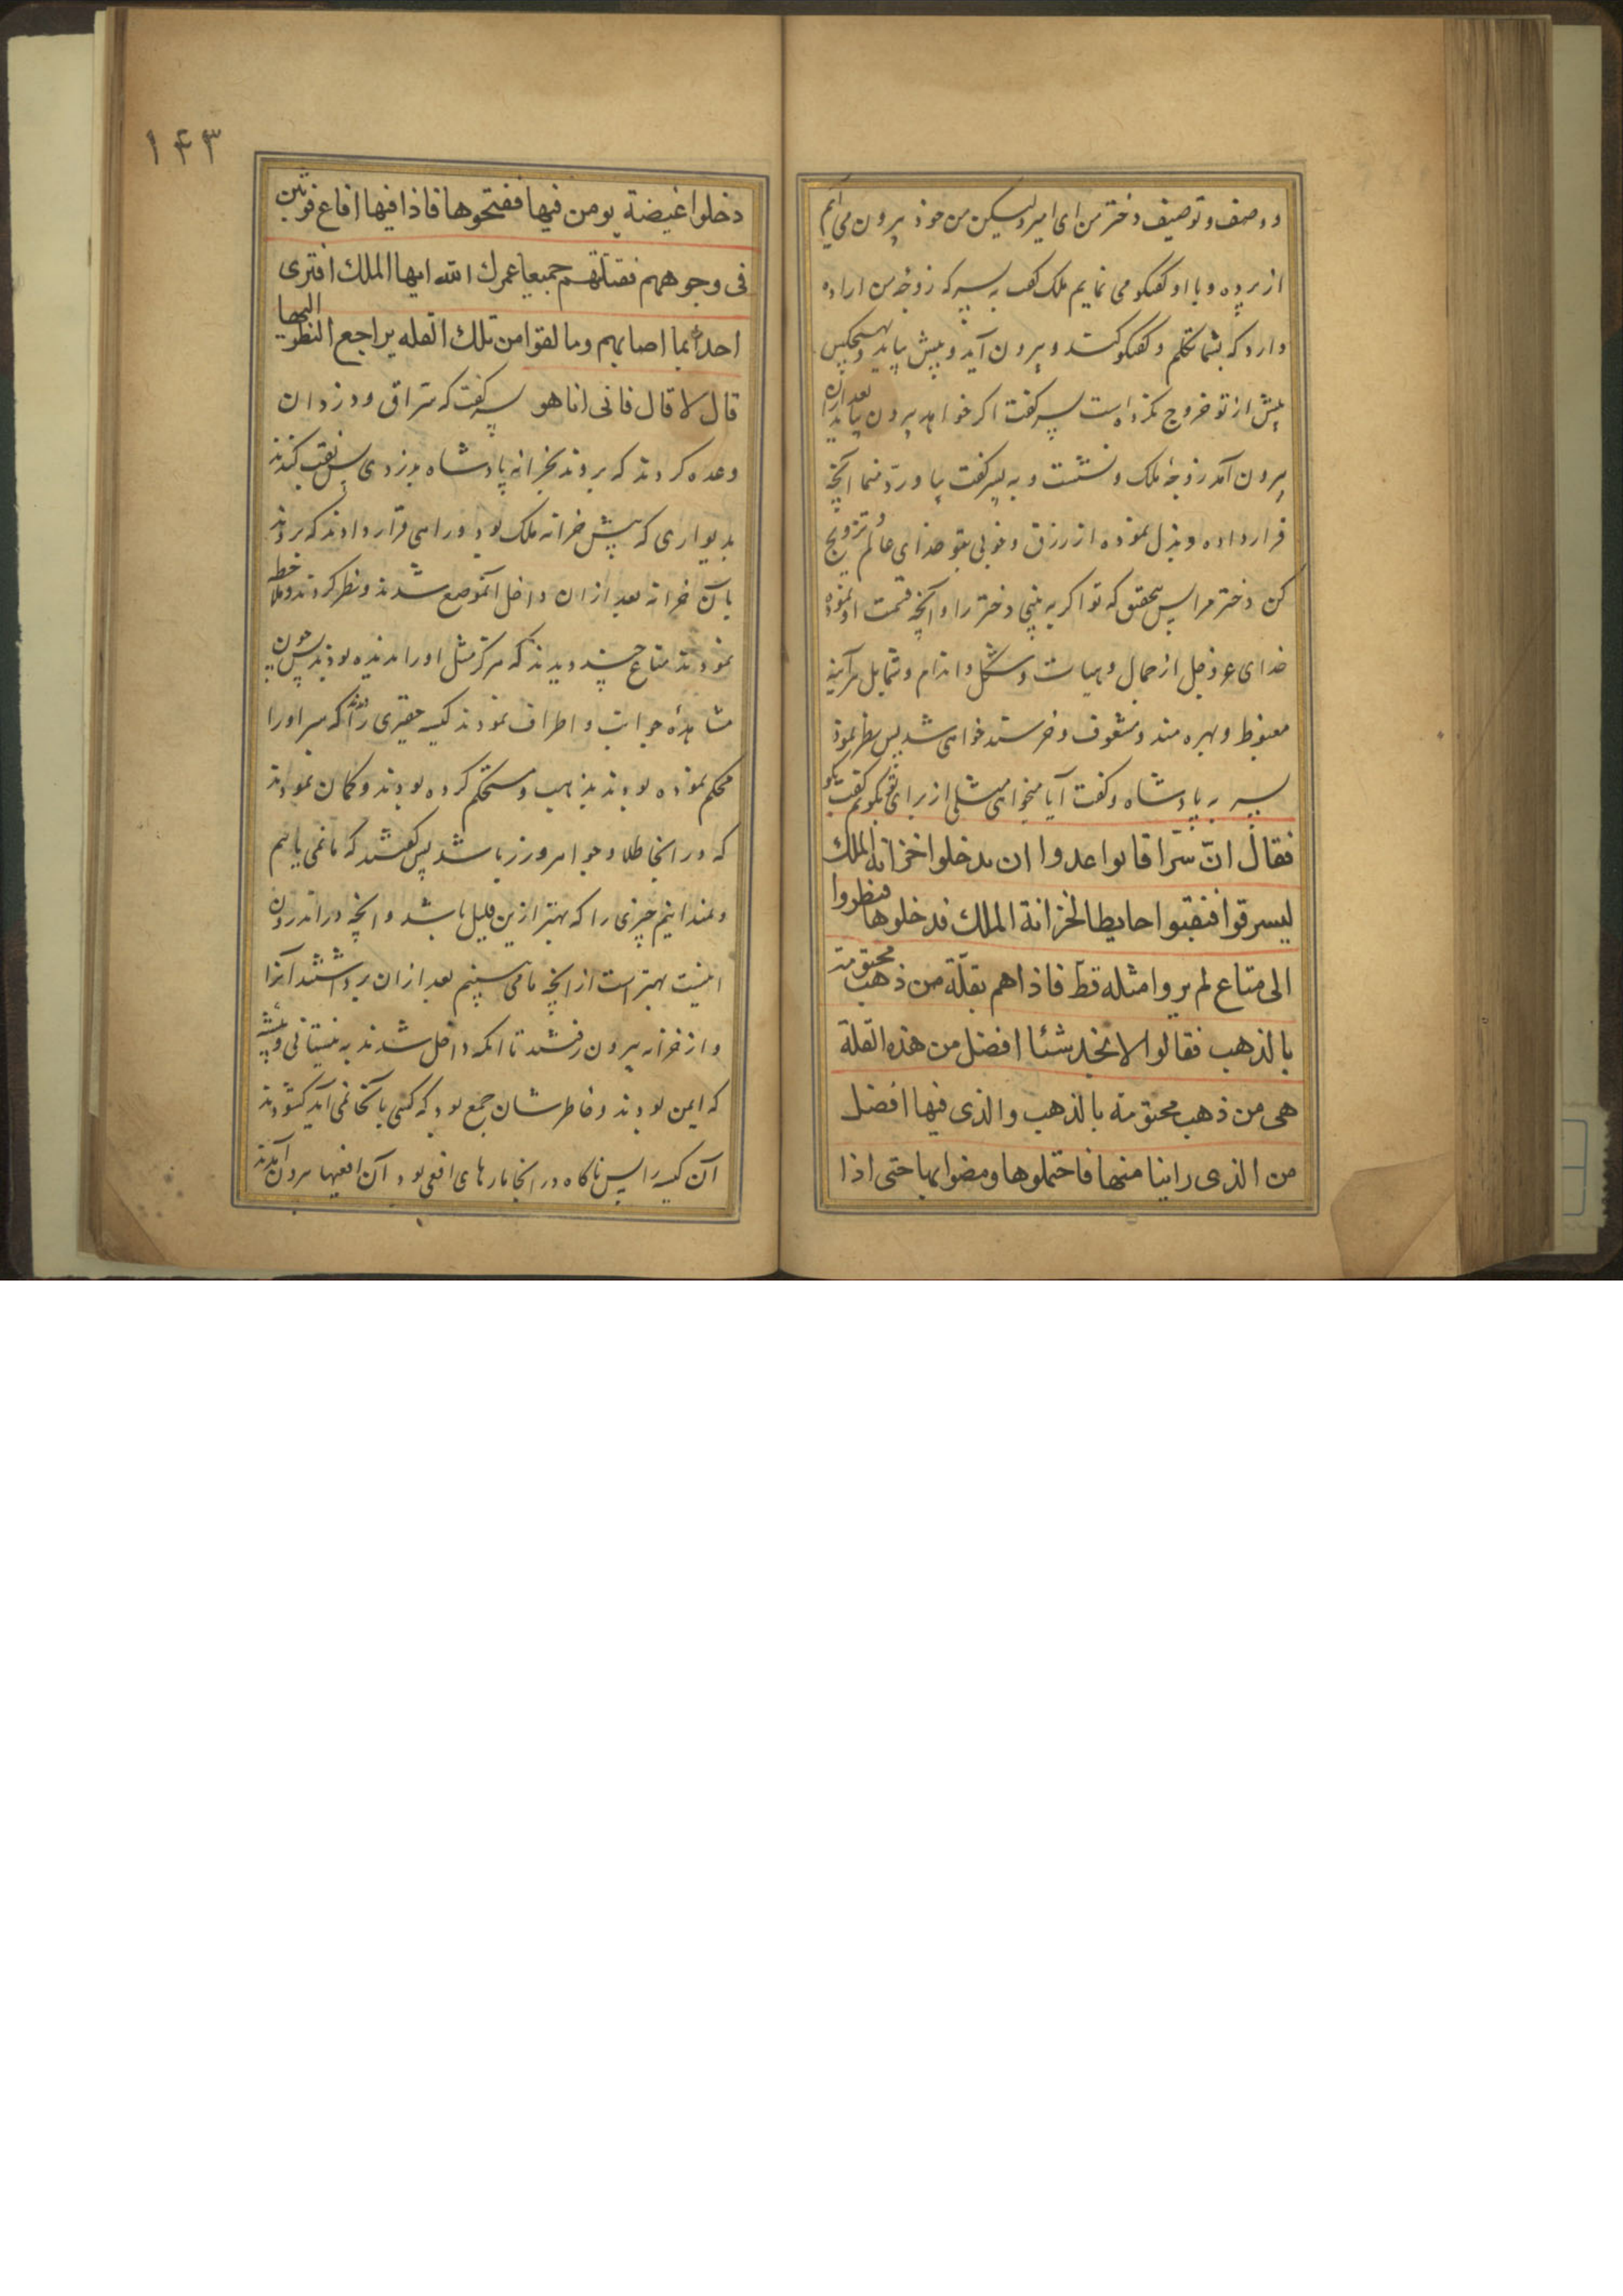 و وصف و توصیف دختر من ای امیر ولیکن من خود بیرون می آیم
از پرده و با او گفتگو می نمایم ملک گفت به پسر که زوجه من اراده
دارد که بشما تکلم و گفتگو کند و بیرون آید و پیش بیاید و هیچکس
پیش از تو خروج نکرده است پسر گفت اگر خواهد بیرون بیاید بعد ازان
بیرون آمد زوجه ملک و نشست و به پسر گفت بیا و رد منما آنچه
قرار داده و بذل نموده از رزق و خوبی بتو خدای عالم تزویج
کن دختر مرا پس بتحقیق که تو اگر به بینی دختر را و آنچه قسمت او نموده
خدای عز و جل از جمال و هیات و شکل و اندام و شمایل هرآینه
مغبوط و بهره مند و مشعوف و خرسند خواهی شد پس نظر نمود
پسر به پادشاه و گفت آیا میخواهی مثلی از برای تو بگویم گفت بگو
فقال انّ سرّاقا تواعدوا ان یدخلوا خزانة الملك
لیسرقوا فنقبوا حایط الخزانة الملك فدخلوها فنظروا
الی متاع لم یروا مثله قطّ فاذاهم بقلّة من ذهب مختومة
بالذهب فقالوا لا نجد شئا افضل من هذه القلة
هی من ذهب مختومة بالذهب والذی فیها افضل
من الذی راینا منها فاحتملوها ومضوا بها حتی اذا
۱۴۳
دخلوا غیضة یومن فیها ففتحوها فاذا فیها افاع فوثبن
فی وجوههم فقتلتهم جمیعا عمرك الله ایها الملك افتری
احدا بما اصابهم وما لقوا من تلك القله یراجع النظر الیها
قال لا قال فانی انا هو پسر گفت که سراق و دزدان
وعده کردند که بروند بخزانه پادشاه بدزدی پس نقب کندند
بدیواری که پیش خزانه ملک بود و راهی قرار دادند که بروند
بآن خزانه بعد ازان داخل آنموضع شدند و نظر کردند و ملاحظه
نمودند متاع چند دیدند که هرگز مثل او را ندیده بودند پس چون
مشاهده جوانب و اطراف نمودند کیسه حقیری را دیدند که سر او را
محکم نموده بودند بذهب و مستحکم کرده بودند و گمان نمودند
که در آنجا طلا و جواهر و زر باشد پس گفتند که ما نمی یابیم
و نمیدانیم چیزی را که بهتر ازین قلیل باشد و آنچه در اندرون
اینست بهتر است از آنچه ما می بینیم بعد ازان برداشتند آنرا
و از خزانه بیرون رفتند تا آنکه داخل شدند به نیستانی و بیشه
که ایمن بودند و خاطرشان جمع بود که کسی بآنجا نمی آید گشودند
آن کیسه را پس ناگاه در آنجا مارهای افعی بود آن افعیها بیرون آمدند